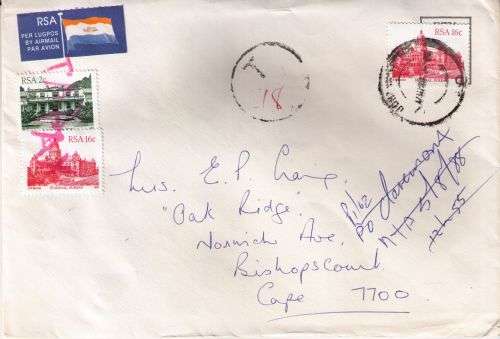 RSA
PER LUGPOS
BY AIRMAIL
PAR AVION
RSA 2c
RSA 16c
RSA 16c
T
18
Mrs. E. P. Craig,
"Oak Ridge",
Norwich Ave,
Bishopscourt
Cape 7700
PO Claremont